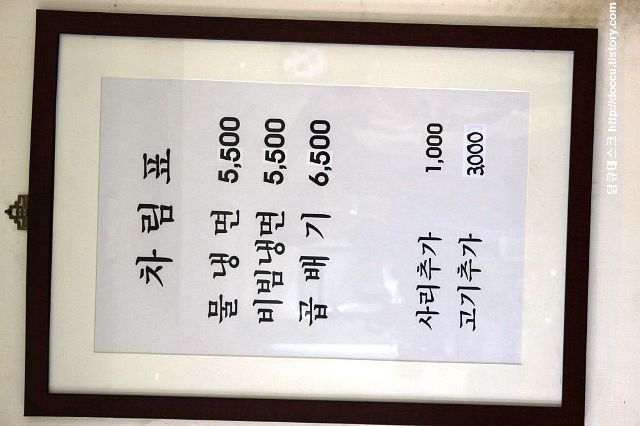 차림표
물냉면 5,500
비빔냉면 5,500
곱배기 6,500
사리추가 1,000
고기추가 3,000
http://doccu.tistory.com